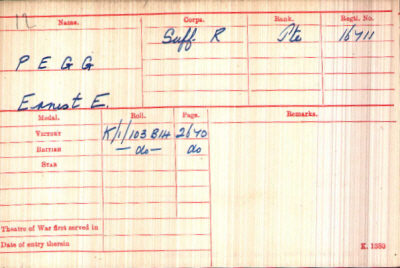 12 Name. Corps. Rank. Regtl. No.
Suff. R Pte 16711
P E G G
Ernest E.
Medal. Roll. Page. Remarks.
Victory K/1/103 B14 2670
British — do — do
Star
Theatre of War first served in
Date of entry therein K. 1380